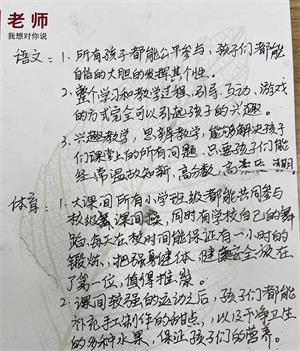 老师
我想对你说
语文：1.所有孩子都能公平参与，孩子们都能
自信的大胆的发挥其个性。
2.整个学习和教学过程，引导、互动、游戏
的方式完全可以引起孩子的兴趣。
3.兴趣教学，思维教学，能够解决孩子
们课堂上的所有问题，只要孩子们能
经常温故知新，高分数，高素质
体育：1.大课间所有小学班级都能共同参与
校级舞课间操，同时有学校自己的舞
蹈，每天在校时间能保证有一小时的
锻炼，把强身健体，健康安全放在
了第一位，值得推崇。
2.课间较强的运动之后，孩子们都能
补充手工制作的甜点，以及干净卫生
的各种水果，保证孩子们的营养。